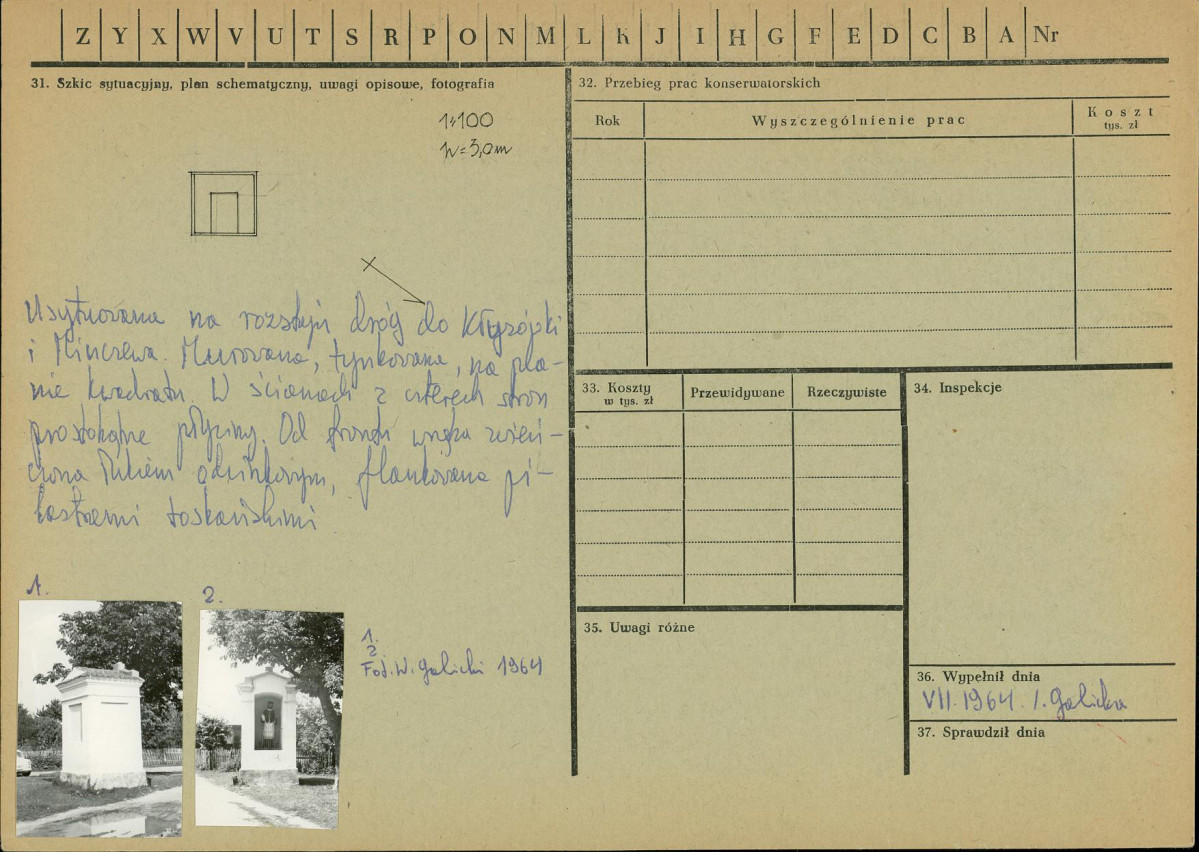 Z Y X W V U T S R P O N M L K J I H G F E D C B A Nr
31. Szkic sytuacyjny, plan schematyczny, uwagi opisowe, fotografia
1:100
h=3,0m
Usytuowana na rozstaju dróg do
i Minczewa. Murowana, tynkowana, na pla-
nie kwadratu. W ścianach z czterech stron
prostokątne płyciny. Od frontu wnęka zwień-
czona łukiem odcinkowym, flankowana pi-
lastrami toskańskimi
1.
2.
1.
2
Fot. W. Galicki 1964
32. Przebieg prac konserwatorskich
Rok Wyszczególnienie prac Koszt
tys. zł
33. Koszty
w tys. zł
Przewidywane Rzeczywiste
34. Inspekcje
35. Uwagi różne
36. Wypełnił dnia
VII. 1964. I. Galicka
37. Sprawdził dnia